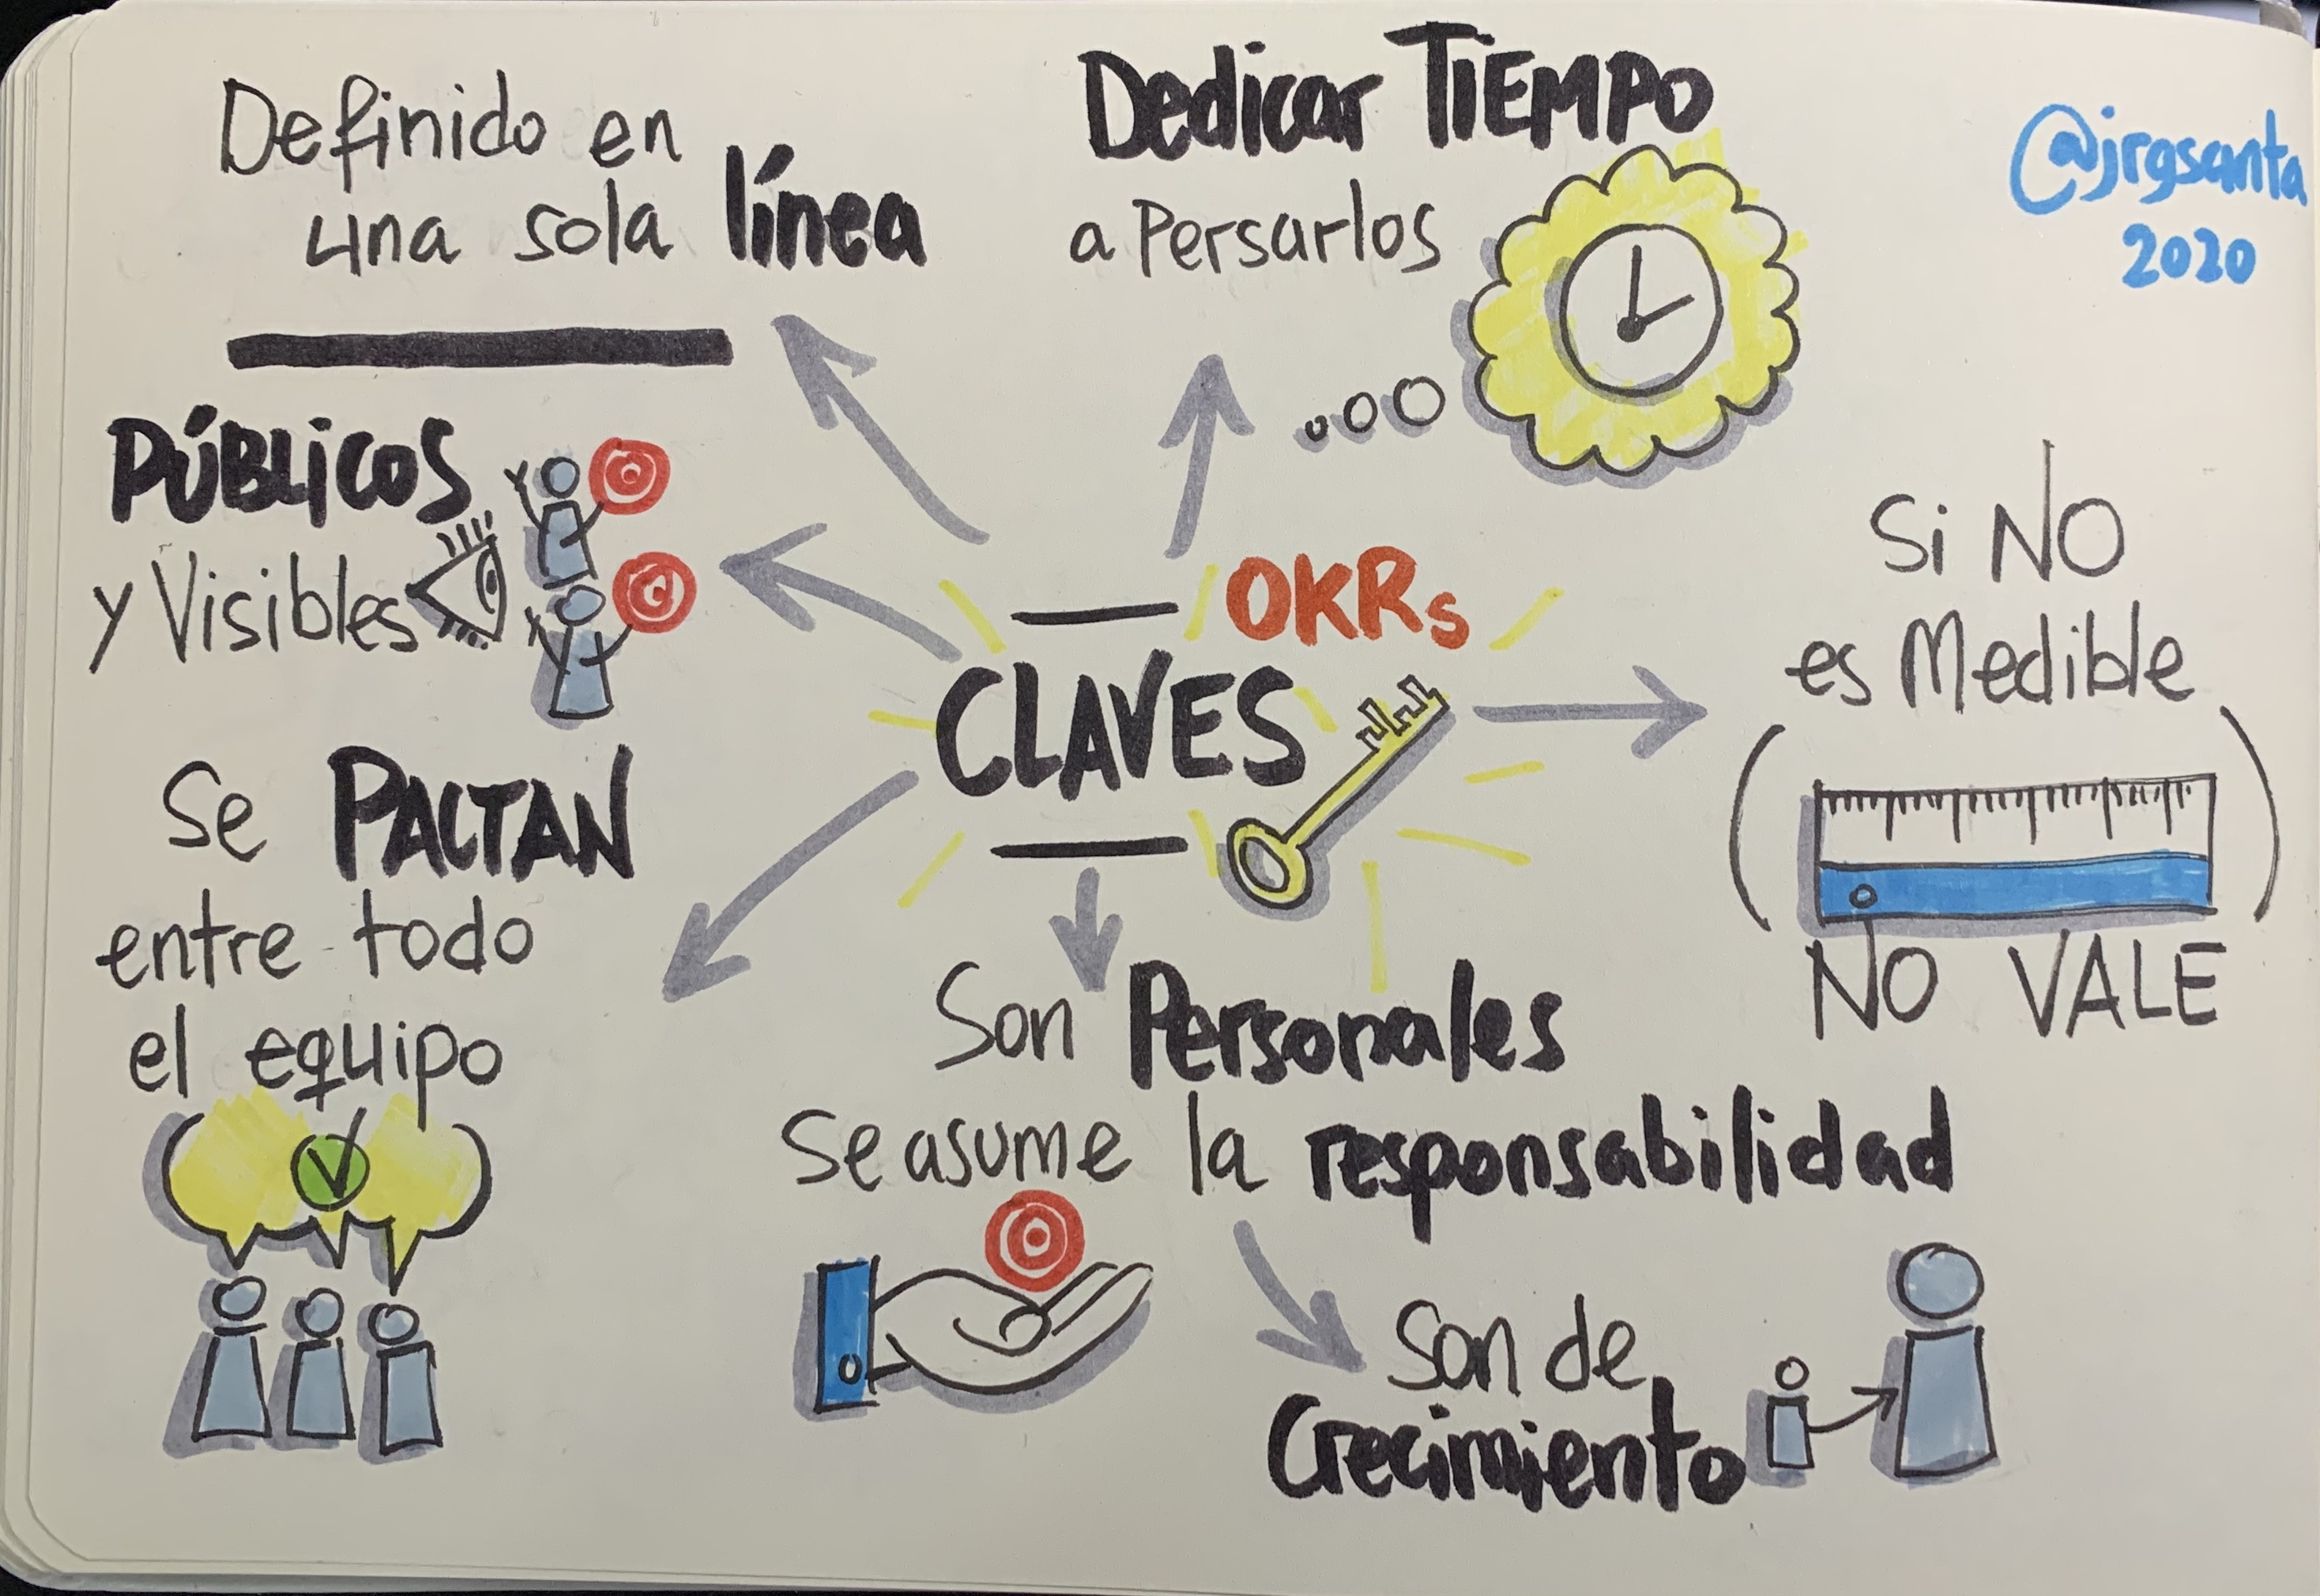 Definido en
una sola línea
Dedicar TIEMPO
a Pensarlos
@jrgsanta
2020
PÚBLICOS
y Visibles
OKRs
CLAVES
Si NO
es Medible
NO VALE
Se PACTAN
entre todo
el equipo
Son Personales
Se asume la responsabilidad
Son de
Crecimiento